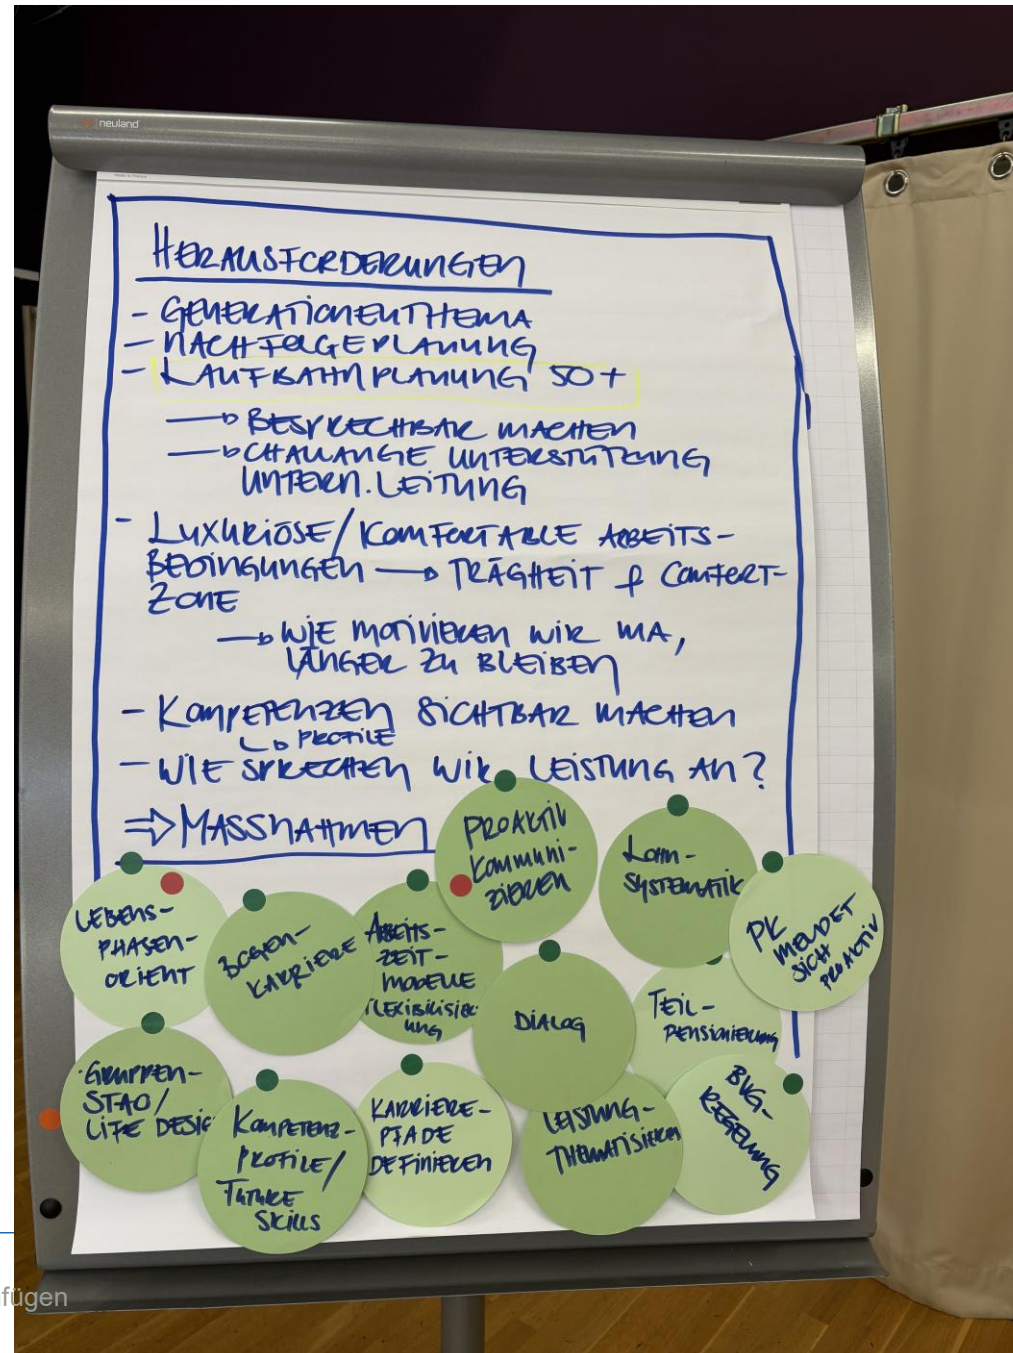 neuland
HERAUSFORDERUNGEN
- GENERATIONENTHEMA
- NACHFOLGEPLANUNG
- LAUFBAHNPLANUNG 50+
→ BESPRECHBAR MACHEN
→ CHALLANGE UNTERSTÜTZUNG
UNTERN. LEITUNG
- LUXURIÖSE/KOMFORTABLE ARBEITS-
BEDINGUNGEN → TRÄGHEIT & COMFORT-
ZONE
→ WIE MOTIVIEREN WIR MA,
LÄNGER ZU BLEIBEN
- KOMPETENZEN SICHTBAR MACHEN
↳ PROFILE
- WIE SPRECHEN WIR LEISTUNG AN?
⇒ MASSNAHMEN
PROAKTIV
KOMMUNI-
ZIEREN
LOHN-
SYSTEMATIK
PK
MELDET
SICH
PROAKTIV
LEBENS-
PHASEN-
ORIENT
BOGEN-
KARRIERE
ARBEITS-
ZEIT-
MODELLE
FLEXIBILISIER
UNG
DIALOG
TEIL-
PENSIONIERUNG
GRUPPEN-
STAO/
LIFE DESIG
KOMPETENZ-
PROFILE/
FUTURE
SKILLS
KARRIERE-
PFADE
DEFINIEREN
LEISTUNG-
THEMATISIEREN
BVG-
REGELUNG
fügen